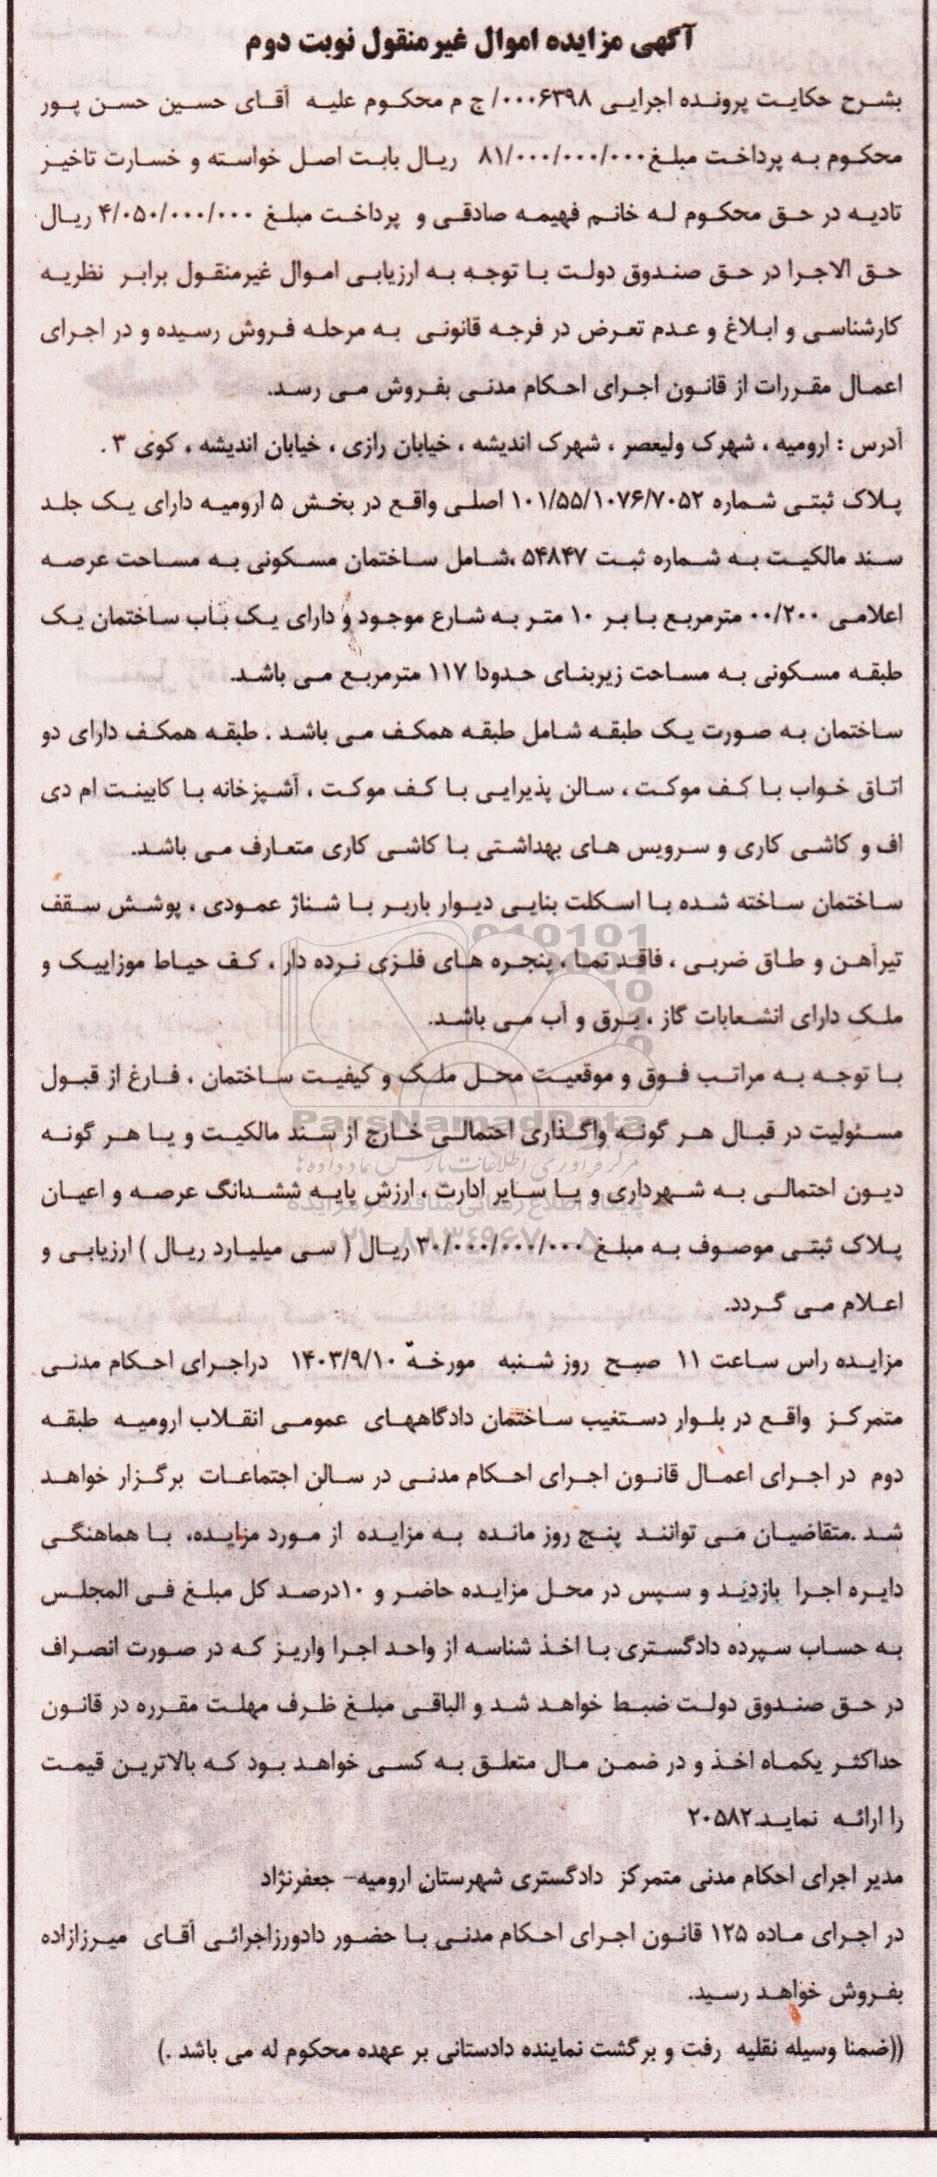 آگهی مزایده اموال غیرمنقول نوبت دوم
بشرح حکایت پرونده اجرایی ۰۰۰۶۳۹۸/ ج م محکوم علیه آقای حسین حسن پور
محکوم به پرداخت مبلغ ۸۱/۰۰۰/۰۰۰/۰۰۰ ریال بابت اصل خواسته و خسارت تاخیر
تادیه در حق محکوم له خانم فهیمه صادقی و پرداخت مبلغ ۴/۰۵۰/۰۰۰/۰۰۰ ریال
حق الاجرا در حق صندوق دولت با توجه به ارزیابی اموال غیرمنقول برابر نظریه
کارشناسی و ابلاغ و عدم تعرض در فرجه قانونی به مرحله فروش رسیده و در اجرای
اعمال مقررات از قانون اجرای احکام مدنی بفروش می رسد.
آدرس : ارومیه ، شهرک ولیعصر ، شهرک اندیشه ، خیابان رازی ، خیابان اندیشه ، کوی ۳ .
پلاک ثبتی شماره ۱۰۱/۵۵/۱۰۷۶/۷۰۵۲ اصلی واقع در بخش ۵ ارومیه دارای یک جلد
سند مالکیت به شماره ثبت ۵۴۸۴۷ ،شامل ساختمان مسکونی به مساحت عرصه
اعلامی ۰۰/۲۰۰ مترمربع با بر ۱۰ متر به شارع موجود و دارای یک باب ساختمان یک
طبقه مسکونی به مساحت زیربنای حدودا ۱۱۷ مترمربع می باشد.
ساختمان به صورت یک طبقه شامل طبقه همکف می باشد . طبقه همکف دارای دو
اتاق خواب با کف موکت ، سالن پذیرایی با کف موکت ، آشپزخانه با کابینت ام دی
اف و کاشی کاری و سرویس های بهداشتی با کاشی کاری متعارف می باشد.
ساختمان ساخته شده با اسکلت بنایی دیوار باربر با شناژ عمودی ، پوشش سقف
تیرآهن و طاق ضربی ، فاقد نما ، پنجره های فلزی نرده دار ، کف حیاط موزاییک و
ملک دارای انشعابات گاز ، برق و آب می باشد.
با توجه به مراتب فوق و موقعیت محل ملک و کیفیت ساختمان ، فارغ از قبول
ParsNamadData
مسئولیت در قبال هر گونه واگذاری احتمالی خارج از سند مالکیت و یا هر گونه
مرکز فرآوری اطلاعات پارس نماد داده ها
دیون احتمالی به شهرداری و یا سایر ادارت ، ارزش پایه ششدانگ عرصه و اعیان
پایگاه اطلاع رسانی مناقصه و مزایده
پلاک ثبتی موصوف به مبلغ ۳۰/۰۰۰/۰۰۰/۰۰۰ ریال ( سی میلیارد ریال ) ارزیابی و
اعلام می گردد.
مزایده راس ساعت ۱۱ صبح روز شنبه مورخه ۱۴۰۳/۹/۱۰ دراجرای احکام مدنی
متمرکز واقع در بلوار دستغیب ساختمان دادگاههای عمومی انقلاب ارومیه طبقه
دوم در اجرای اعمال قانون اجرای احکام مدنی در سالن اجتماعات برگزار خواهد
شد .متقاضیان می توانند پنج روز مانده به مزایده از مورد مزایده، با هماهنگی
دایره اجرا بازدید و سپس در محل مزایده حاضر و ۱۰درصد کل مبلغ فی المجلس
به حساب سپرده دادگستری با اخذ شناسه از واحد اجرا واریز که در صورت انصراف
در حق صندوق دولت ضبط خواهد شد و الباقی مبلغ ظرف مهلت مقرره در قانون
حداکثر یکماه اخذ و در ضمن مال متعلق به کسی خواهد بود که بالاترین قیمت
را ارائه نماید.۲۰۵۸۲
مدیر اجرای احکام مدنی متمرکز دادگستری شهرستان ارومیه- جعفرنژاد
در اجرای ماده ۱۲۵ قانون اجرای احکام مدنی با حضور دادورزاجرائی آقای میرزازاده
بفروش خواهد رسید.
((ضمنا وسیله نقلیه رفت و برگشت نماینده دادستانی بر عهده محکوم له می باشد .)